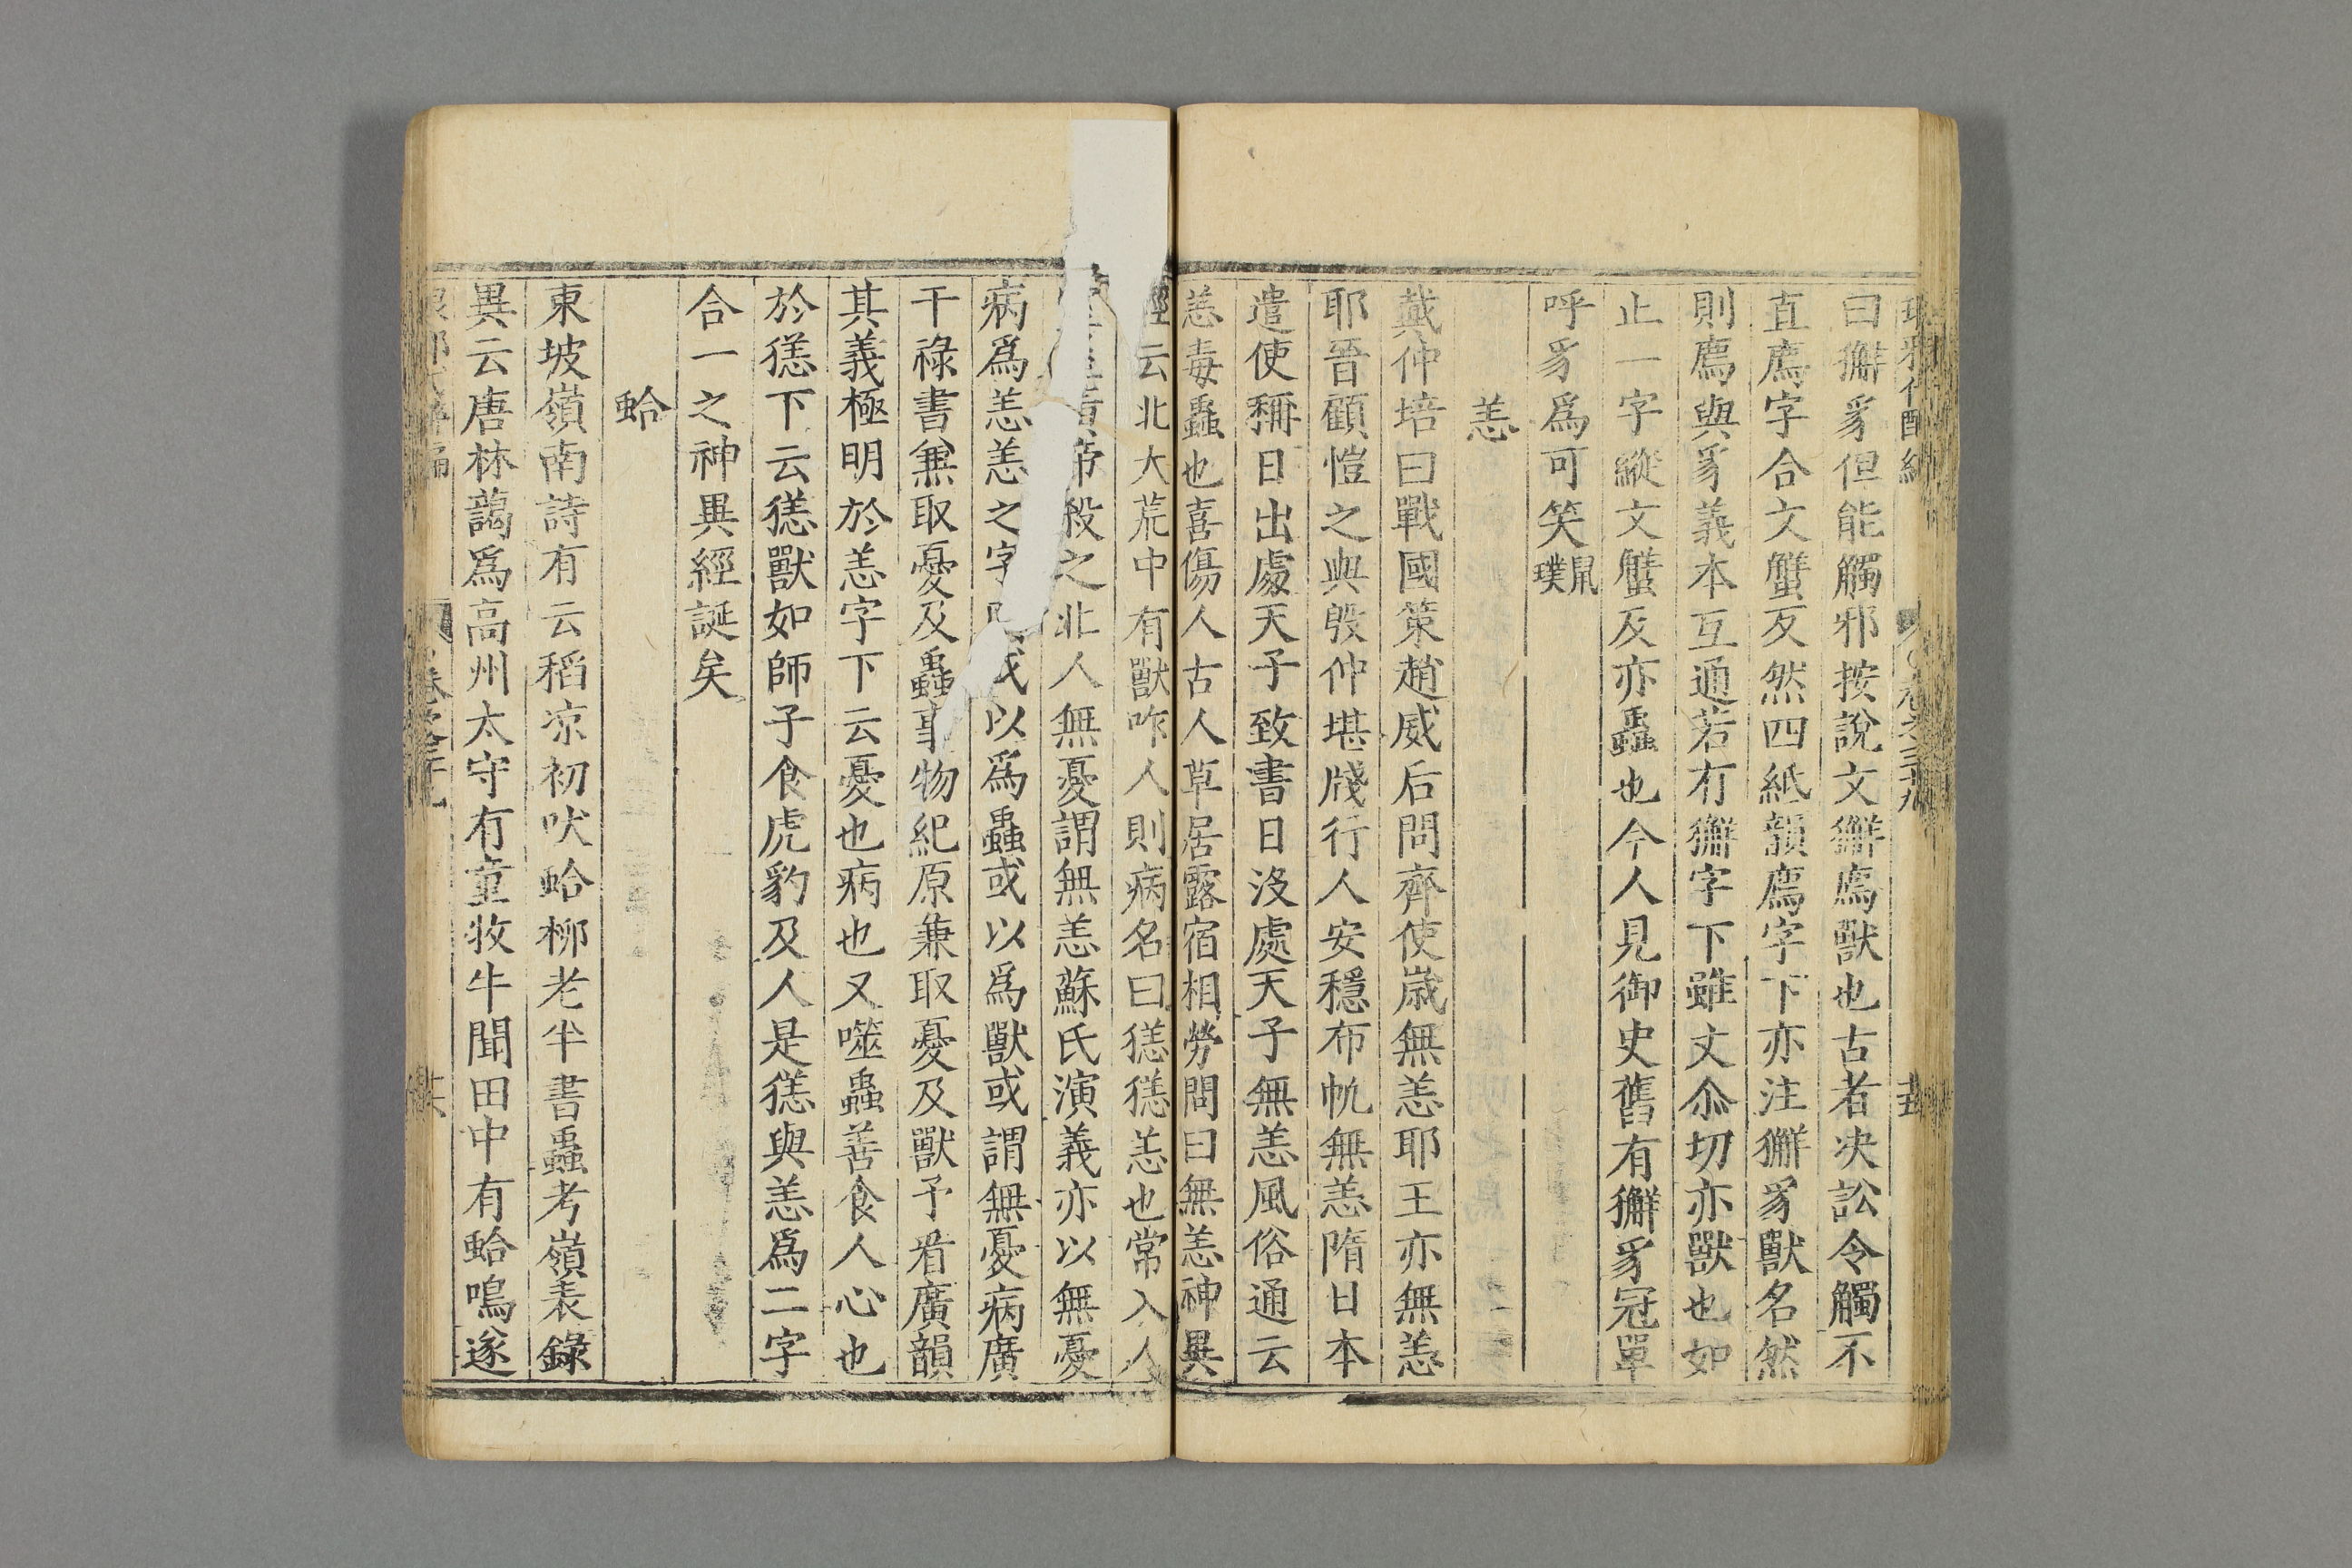 曰獬豸但能觸邪按說文獬廌獸也古者决訟令觸不
直廌字合文蟹反然四紙韻廌字下亦注獬豸獸名然
則廌與豸義本互通若有獬字下雖丈尒切亦獸也如
止一字縱文雠及亦蟲也今人見御史舊有獬豸冠單
呼豸為可笑鼠璞
恙
戴仲培曰戰國策趙威后問齊使歲無恙耶王亦無恙
耶晉顧愷之與殷仲堪牋行人安穩布帆無恙隋日本
遣使稱日出處天子致書日沒處天子無恙風俗通云
恙毒蟲也喜傷人古人草居露宿相勞問曰無恙神異
經云北大荒中有獸咋人則病名曰𤡲𤡲恙也常入人
帝殺之北人無憂謂無恙蘇氏演義亦以無憂
病爲恙恙之字或以爲蟲或以爲獸或謂無憂病廣
干祿書兼取憂及蟲事物紀原兼取憂及獸予看廣韻
其義極明於恙字下云憂也病也又噬蟲善食人心也
於𤡲下云𤡲獸如師子食虎豹及人是𤡲與恙爲二字
合一之神異經誕矣
蛤
東坡嶺南詩有云稻凉初吠蛤柳老半書蟲考嶺表錄
異云唐林藹爲高州太守有童牧牛聞田中有蛤鳴遂